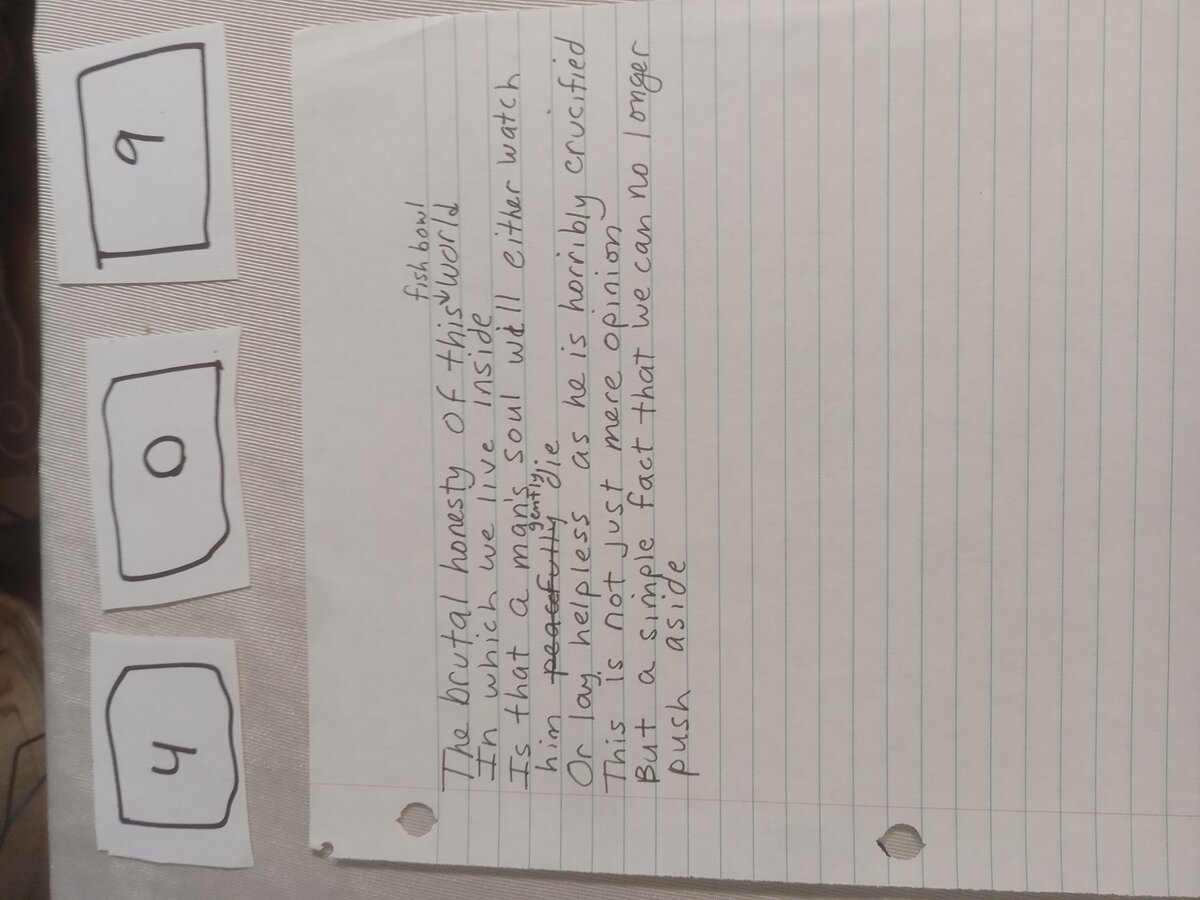 4 0 9
fishbowl
The brutal honesty of this world
In which we live inside
Is that a man's soul will either watch
him peacefully gently die
Or lay helpless as he is horribly crucified
This is not just mere opinion
But a simple fact that we can no longer
push aside